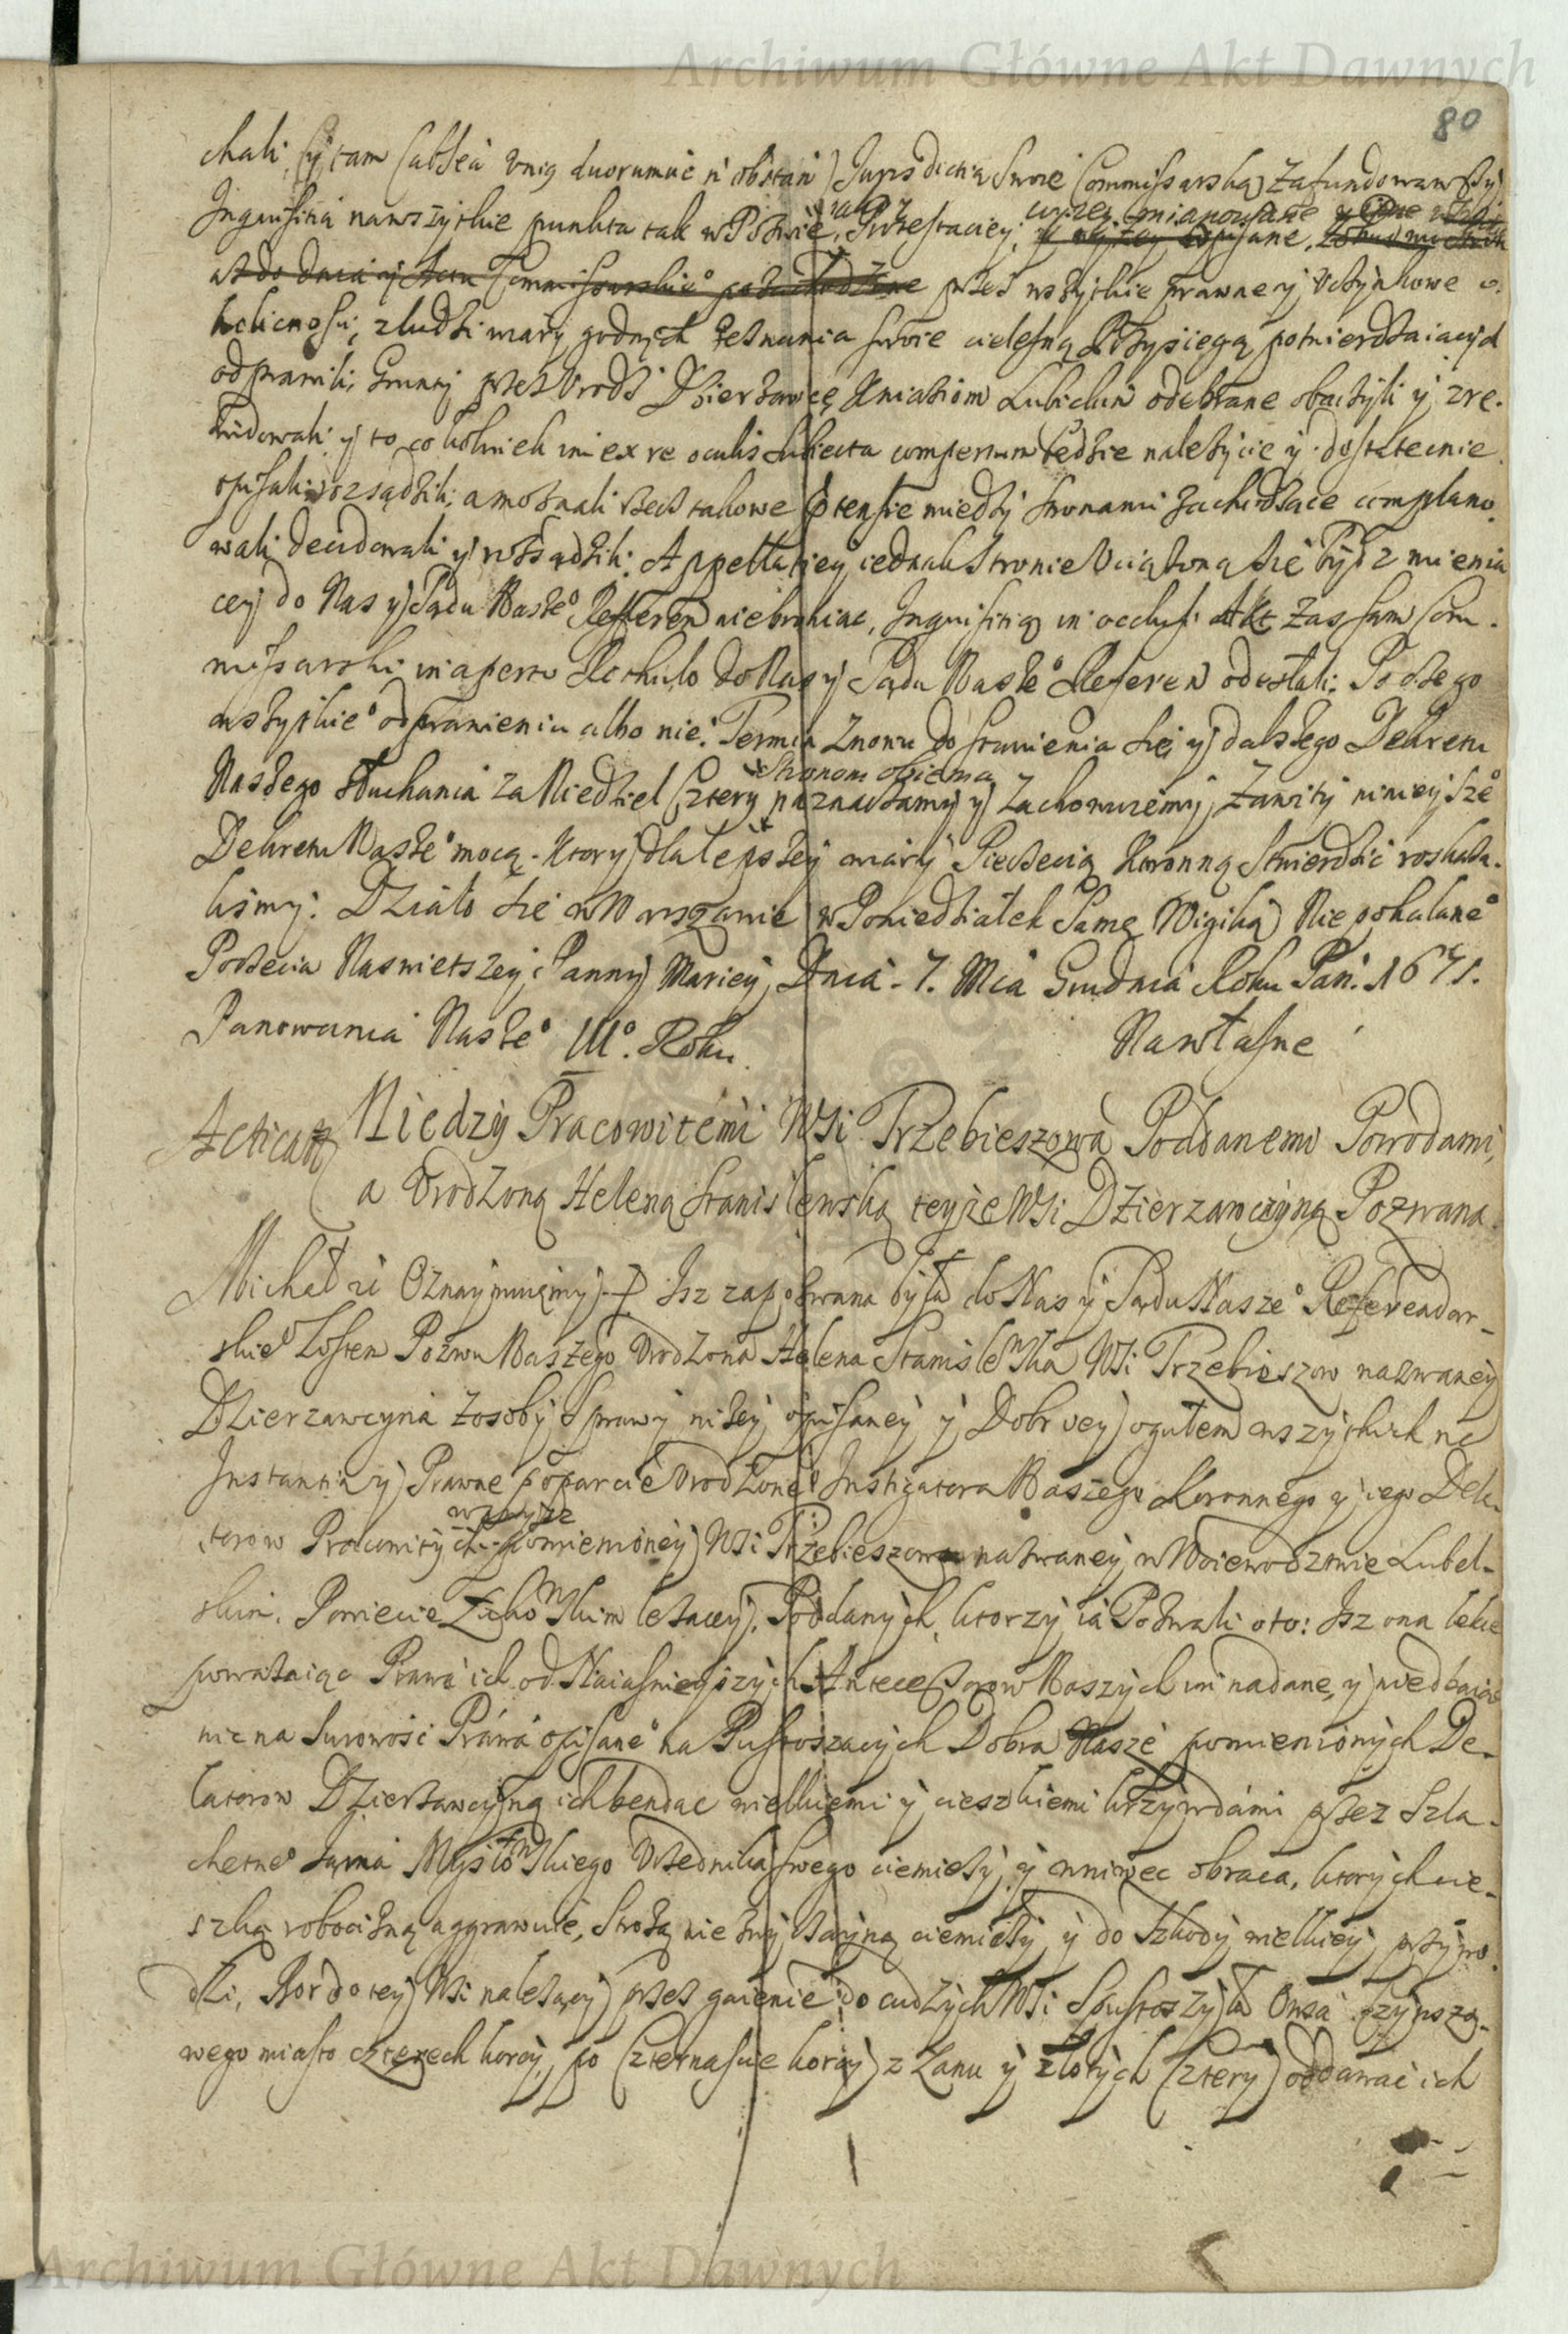 Archiwum Główne Akt Dawnych
80
chali, y tam (absentia unig duorumue n obstan) Jurisdictią swoię Commissarską zafundowawszy
Inquisitią na wszytkie punkta tak w Pozwie, iako y Protestaciey, wyzey mianowane
przez wszytkie prawne y uczynkowe o-
koliczności, z ludzi wiary godnych zeznania swoie cielesną Przysięgą potwierdzaiących
odprawili, Grunty przez Urodź Dzierzawcę Kniaziom Lubickim odebrane obaczyli y zre-
widowali y to co kolwiek in ex re oculis subiecta compertum będzie nalezycie y dostatecznie
opisali rozsądzili, a moznali rzecz takowe ptensie miedzy stronami zachodzące complano-
wali decidowali y rozsądzili. Appellatiey iednak stronie uciązoną się bydz mienia-
cey do Nas y Sądu Nasze° Referen niebroniąc, Inquisitią in occlusi Akt zas sam Com-
missarski in aperto Rothulo do Nas y Sądu Nasze° Referen odesłali. Po czego
wszytkie° odprawieniu albo nie. Termin znowu do stawienia się y dalszego Dekretu
Stronom obiema
Naszego słuchania za Niedziel Cztery naznaczamy y zachowuiemy, zawity ninieysze°
Dekretu Nasze° mocą. Ktory dla lepszey wiary Pieczęcią Koronną stwierdzić roskaza-
lismy. Działo się w Warszawie w Poniedziałek Samę Wigilią Niepokalane°
Poczęcia Naswietszey Panny Mariey, Dnia 7. Mca Grudnia Roku Pań. 1671.
Panowania Nasze° III°. Roku.
Na własne
Acticat Miedzy Pracowitemi Wsi Trzebieszowa Poddanemi Powodami,
a Urodzoną Heleną Stanislewską teyze Wsi Dzierzawczyną Pozwaną
Michał zi Oznaymuiemy Isz zapozwana była do Nas y Sądu Nasze° Referendar-
skie° Pozwu Naszego Urodzona Helena Stanislewska Wsi Trzebieszow nazwaney
Dzierzawcyna z osoby sprawy nizey opisaney y Dobr iey ogułem wszytkich na
Instantią y Prawne poparcie Urodzone° Instigatora Naszego Koronnego y iego Dela-
torow Pracowitych pomienioney Wsi Trzebieszowa nazwaney w Woiewodztwie Lubel-
skim, Powiecie Łukowskim lezacey, Poddanych, ktorzy ią Pozwali oto: Isz ona lekce
powazaiąc Prawa ich od Naiasnieyszych Antecessorow Naszych im nadane, y niedbaiąc
nic na surowość Prawa opisane° na Pustoszących Dobra Nasze pomienionych De-
latorow Dzierzawczyną ich bendąc wielkiemi y cieszkiemi krzywdami przez Szla-
chetne° Mysłowskiego Urzednika swego ciemięzy y wniwec obraca, ktorych cie-
szką robocizną aggrawuie, Strozą nie zwyczayną ciemięzy y do szkody wielkiey przywo-
dzi, Bor do tey Wsi nalezący przez do cudzych Wsi Spustoszyła Owsa czynszo-
wego miasto czterech korcy, po czternascie korcy z Łanu y złotych cztery oddawać ich
Archiwum Główne Akt Dawnych